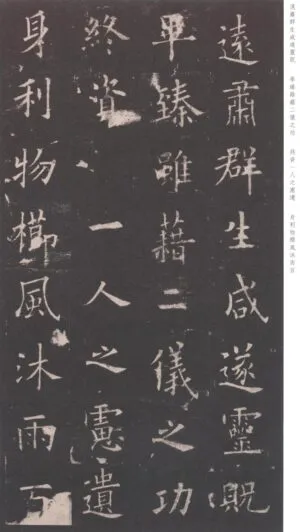 遠肅群生咸遂靈貺　畢臻雖藉二儀之功　終資一人之慮遺　身利物櫛風沐雨百
遠肅群生咸遂靈貺
畢臻雖藉二儀之功
終資一人之慮遺
身利物櫛風沐雨百